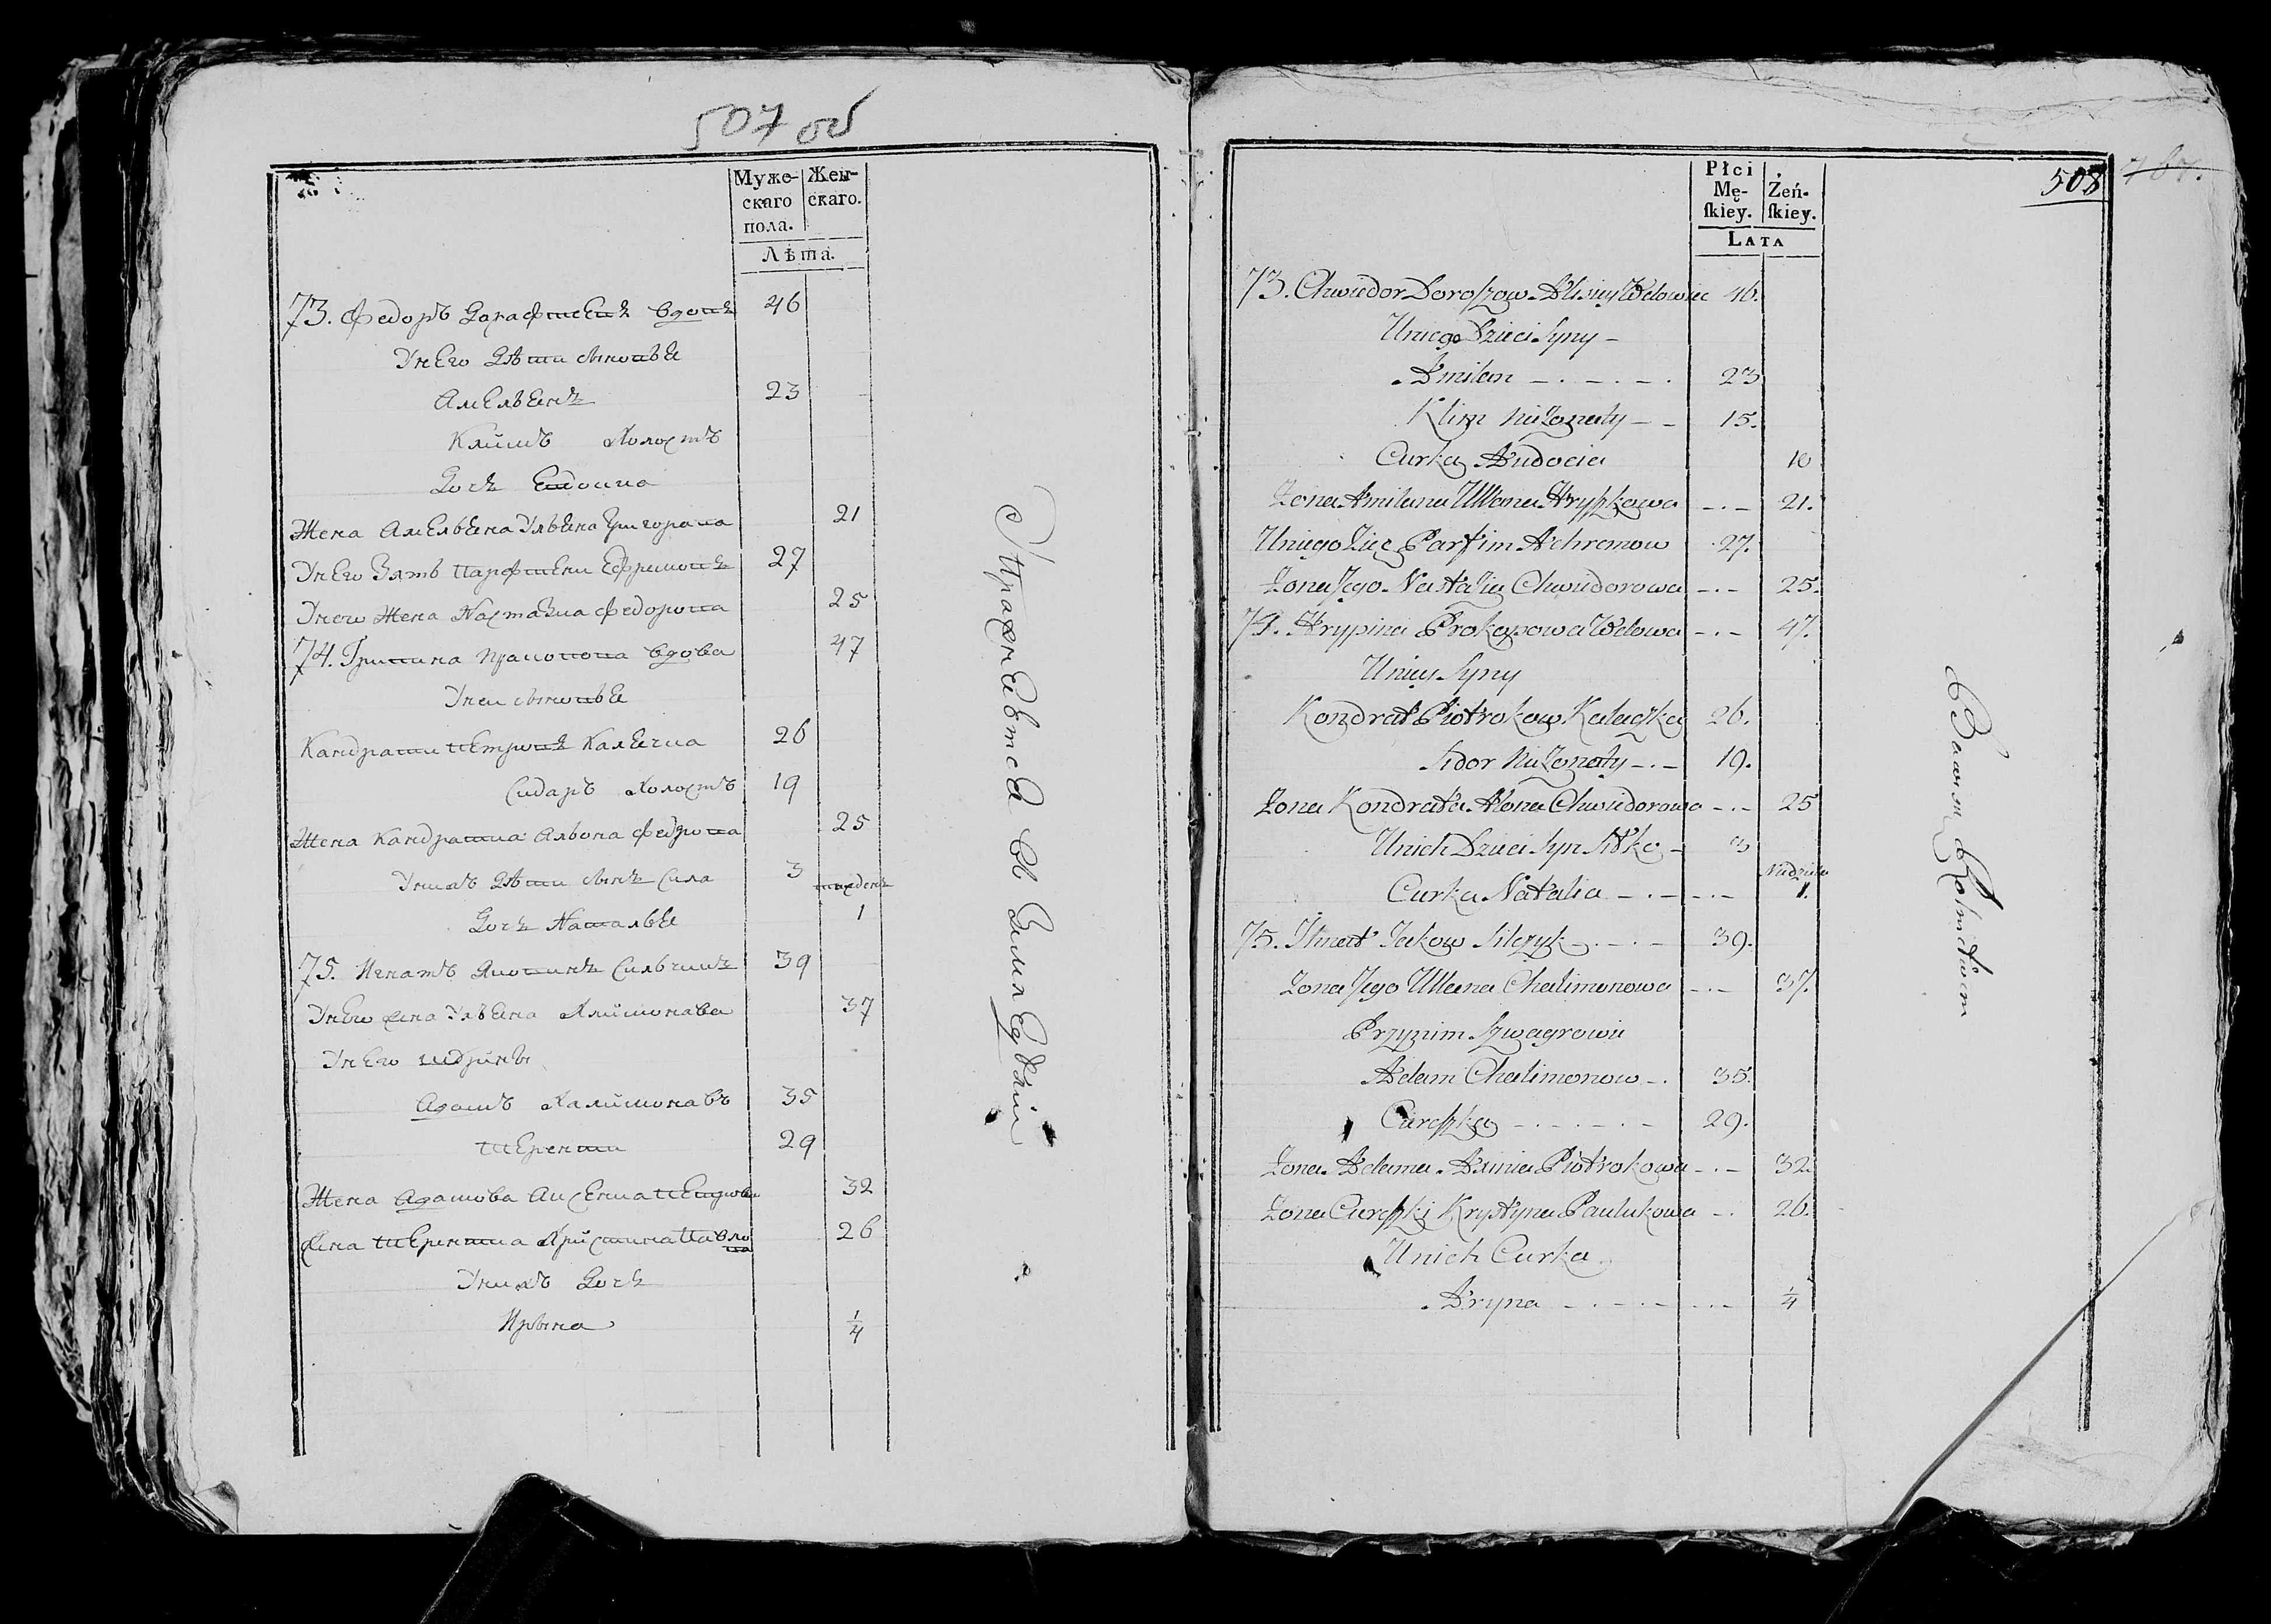 507 об
Муже-
скаго
пола.
Жен-
скаго.
Лѣта.
73. Федоръ Дарафеевъ вдовъ 46
Унего Дѣти сыновья
Амельянъ 23
Клим Холостъ
Дочь Евдокия
Жена Амельяна Ульяна Григорова 21
Унего Зять Парфени Ефримовъ 27
Унего Жена Настазиа Федорова 25
74. Грипина вдова 47
Унеи сыновья
Кандрати Петровъ Калечиа 26
Сидаръ Холостъ 19
Жена Кандратиа Альона Федорова 25
Унихъ Дѣти сынъ Сила 3
Дочь Наталья 1
75. Игнатъ Яковинъ Сильчикъ 39
Унего жена Ульяна Хлимонава 37
Унего Шурины
Адамъ Халимонавъ 35
Терентии 29
Жена Адамова Аксениа Петрова 32
жена Терентиа Христина Павлова 26
Унихъ Дочь
Ирына 1/4
508
Płci
Mę-
ſkiey.
Żeń-
ſkiey.
LATA
73. Chwiedor Doroszow Wdowiec 46.
Uniego Dzieci Syny -
Amilan 23
Klim Nieżonaty 15.
Curka Audocia 10
Żona Amilana Ullana Hryszkowa 21.
Uniego Zięć Parfim Achremow 27.
Żona Jego Nastazia Chwiedorowa 25.
74. Hrypina Prokopowa Wdowa 47.
Unięy Syny
Kondrat Piotrokow Kaleczka 26.
Sidor Nieżonaty 19.
Żona Kondrata Alona Chwiedorowa 25
Unich Dzieci Syn Sitko 3
Curka Natalia Niedziela 1.
75. Ihnat Jakow Silczyk 39.
Żona Jego Ullana Chalimonowa 37.
Przynim Szwagrowie
Adam Chalimonow 35.
Cureszka 29.
Żona Adama Axinia Piotrokowa 32.
Żona Cureszki Krystyna Paulukowa 26.
Unich Curka
Aryna 1/4